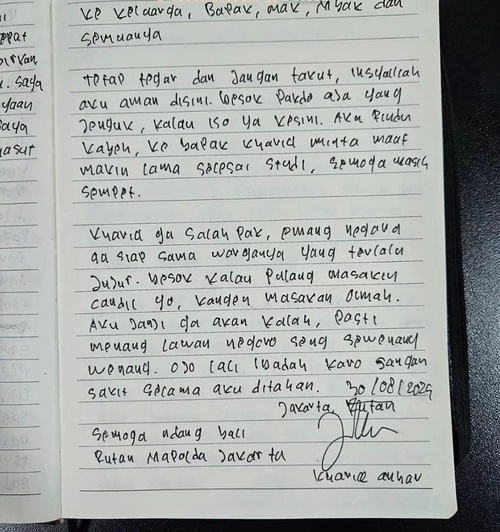 ke keluarga, Bapak, mak, Mbak dan
semuanya
Tetap tegar dan Jangan takut, insyallah
aku aman disini. besok Pakde asa yang
Jenguk, kalau iso ya kesini. Aku Rindu
kabeh, ke bapak kharid minta maaf
makin lama selesai studi, semoga masih
sempet.
kharid ga salah Pak, emang negara
ga siap sama warganya yang terlalu
Jujur. besok kalau Pulang masakin
candil yo, kangen masakan Oumah.
Aku Janji ga akan kalah, Pasti
menang lawan negoro seng sewenang
wenang. Ojo lali Ibadah karo Jangan
sakit selama aku ditahan. 30/08/2025
Jakarta, Rutan
Semoga ndang bali
Rutan Mapolda Jakarta
Kharid anhar
epat
saya
yaan
saya
masur